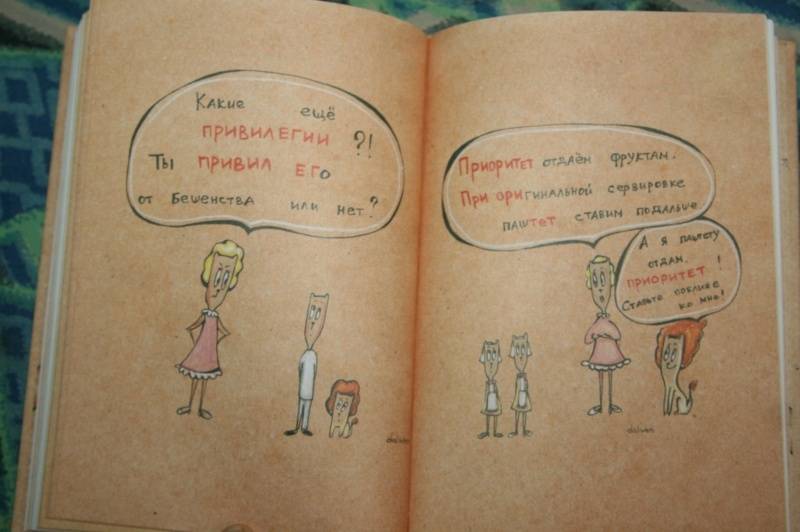 Какие ещё
ПРИВИЛЕГИИ ?!
Ты ПРИВИЛ ЕГо
от бешенства или нет?
Приоритет отдаём фруктам.
При оригинальной сервировке
паштет ставим подальше
А я паштету
отдам.
ПРИОРИТЕТ !
Ставьте поближе
ко мне!